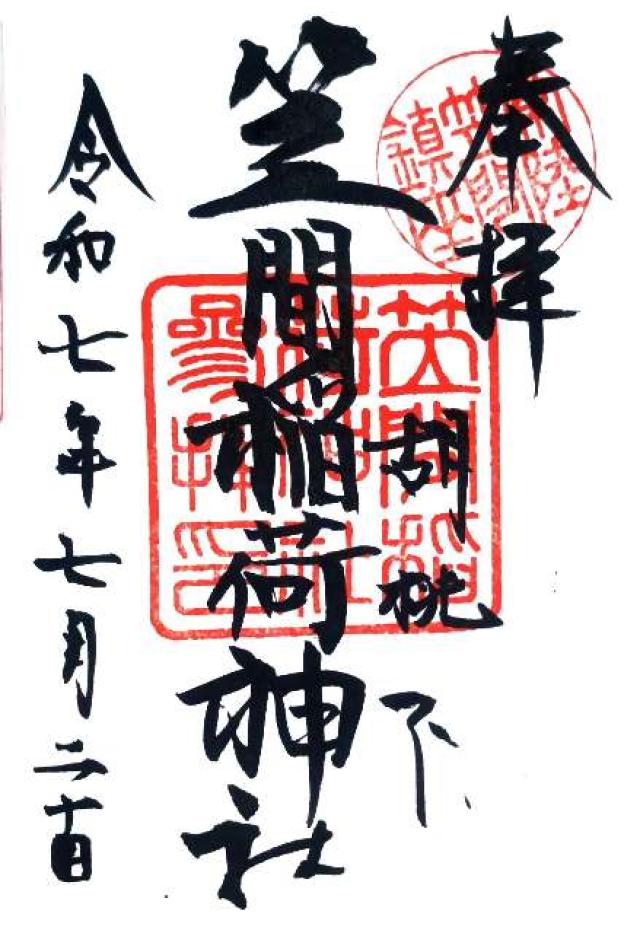 奉拝
常陸
笠間
鎮座
胡桃下
笠間稲荷神社
笠間稲
荷神社
參拝印
令和七年七月二十日